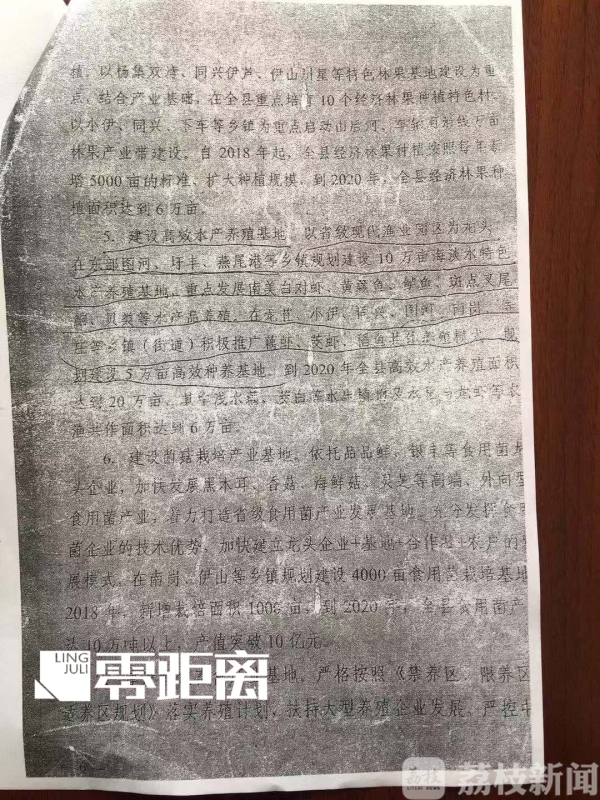 植。以杨集双湾、同兴伊芦、伊山川星等特色林果基地建设为重
点，结合产业基础，在全县重点培育10个经济林果种植特色村。
以小伊、同兴、下车等乡镇为重点启动山后河、车轴河沿线万亩
林果产业带建设。自2018年起，全县经济林果种植按照每年新
增5000亩的标准，扩大种植规模，到2020年，全县经济林果种
植面积达到6万亩。
5、建设高效水产养殖基地。以省级现代渔业园区为龙头，
在东部图河、圩丰、燕尾港等乡镇规划建设10万亩海淡水特色
水产养殖基地，重点发展南美白对虾、黄菜鱼、鲈鱼、斑点叉尾
鮰、贝类等水产品养殖。在 小伊、同兴、图河、南岗、
庄等乡镇（街道）积极推广
建设5万亩高效种养基地。到2020年全县高效水产养殖面积
达到20万亩，其中浅水藕、茭白等水生植物及
渔共作面积达到6万亩。
6、建设菌菇栽培产业基地。依托品品鲜、银丰等食用菌龙
头企业，加快发展黑木耳、香菇、海鲜菇、灵芝等高端、外向型
食用菌产业，着力打造省级食用菌产业发展基地。充分发挥食用
菌企业的技术优势，加快建立龙头企业+基地+合作社+农户的发
展模式。在南岗、伊山等乡镇规划建设4000亩食用菌栽培基地
2018年，新增栽培面积1000亩，到2020年，全县食用菌产
达10万吨以上，产值突破10亿元。
基地。严格按照《禁养区、限养区
适养区规划》落实养殖计划，扶持大型养殖企业发展，严控
LING
JULI
零距离
荔枝
LITCHI NEWS
荔枝新闻